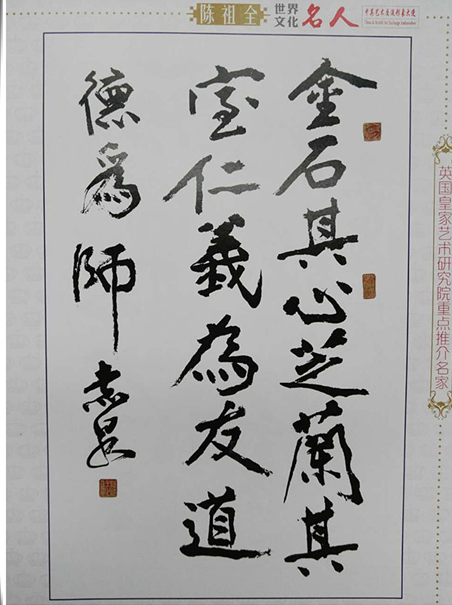 陈祖全
世界文化
名人
金石其心芝蘭其
室仁義為友道
德為師
英国皇家艺术研究院重点推介名家